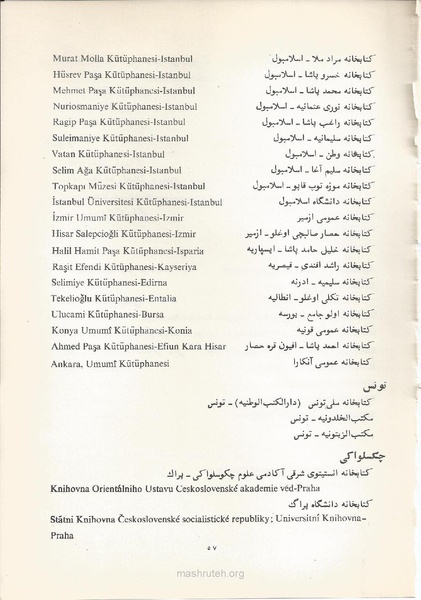 Murat Molla Kütüphanesi-Istanbul کتابخانه مراد ملا ـ اسلامبول
Hüsrev Paşa Kütüphanesi-Istanbul کتابخانه خسرو پاشا ـ اسلامبول
Mehmet Paşa Kütüphanesi-Istanbul کتابخانه محمد پاشا ـ اسلامبول
Nuriosmaniye Kütüphanesi-Istanbul کتابخانه نوری عثمانیه ـ اسلامبول
Ragip Paşa Kütüphanesi-Istanbul کتابخانه راغب پاشا ـ اسلامبول
Suleimaniye Kütüphanesi-Istanbul کتابخانه سلیمانیه ـ اسلامبول
Vatan Kütüphanesi-Istanbul کتابخانه وطن ـ اسلامبول
Selim Ağa Kütüphanesi-Istanbul کتابخانه سلیم آغا ـ اسلامبول
Topkapı Müzesi Kütüphanesi-Istanbul کتابخانه موزه توپ قاپو ـ اسلامبول
İstanbul Üniversitesi Kütüphanesi-Istanbul کتابخانه دانشگاه اسلامبول
İzmir Umumî Kütüphanesi-Izmir کتابخانه عمومی ازمیر
Hisar Salepcioğli Kütüphanesi-Izmir کتابخانه حصار صالبچی اوغلو ـ ازمیر
Halil Hamit Paşa Kütüphanesi-Isparia کتابخانه خلیل حامد پاشا ـ ایسپاریه
Raşit Efendi Kütüphanesi-Kayseriya کتابخانه راشد افندی ـ قیصریه
Selimiye Kütüphanesi-Edirna کتابخانه سلیمیه ـ ادرنه
Tekelioğlu Kütüphanesi-Entalia کتابخانه تکلی اوغلو ـ انطالیه
Ulucami Kütüphanesi-Bursa کتابخانه اولو جامع ـ بورسه
Konya Umumî Kütüphanesi-Konia کتابخانه عمومی قونیه
Ahmed Paşa Kütüphanesi-Efiun Kara Hisar کتابخانه احمد پاشا ـ افیون قره حصار
Ankara, Umumî Kütüphanesi کتابخانه عمومی آنکارا
تونس
کتابخانه ملی تونس (دارالکتب الوطنیه) ـ تونس
مکتب الخلدونیه ـ تونس
مکتب الزیتونیه ـ تونس
چکسلواکی
کتابخانه انستیتوی شرقی آکادمی علوم چکوسلواکی ـ پراگ
Knihovna Orientálního Ustavu Československé akademie věd-Praha
کتابخانه دانشگاه پراگ
Státni Knihovna Československé socialistické republiky; Universitní Knihovna-
Praha
۵۷
mashruteh.org